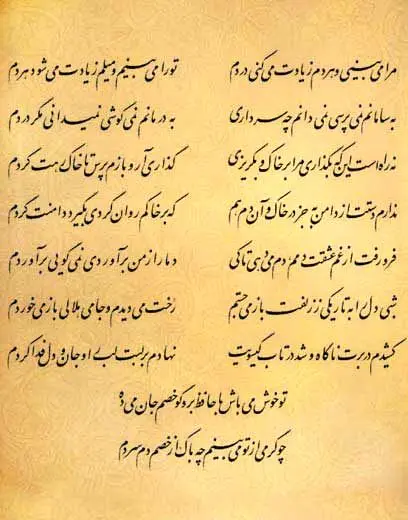 مرا می بینی و هر دم زیادت می کنی دردم تو را می بینم و میلم زیادت می شود هر دم
به سامانم نمی پرسی نمی دانم چه سر داری به درمانم نمی کوشی نمی دانی مگر دردم
نه راه است این که بگذاری مرا بر خاک و بگریزی گذاری آر و بازم پرس تا خاک رهت گردم
ندارم دستت از دامن به جز در خاک و آن دم هم که بر خاکم روان گردی بگیرد دامنت گردم
فرو رفت از غم عشقت دمم دم می دهی تا کی دمار از من برآوردی نمی گویی برآوردم
شبی دل را به تاریکی ز زلفت باز می جستم رخت می دیدم و جامی هلالی باز می خوردم
کشیدم در برت ناگاه و شد در تاب گیسویت نهادم بر لبت لب را و جان و دل فدا کردم
تو خوش می باش با حافظ برو گو خصم جان می ده
چو گرمی از تو می بینم چه باک از خصم دم سردم